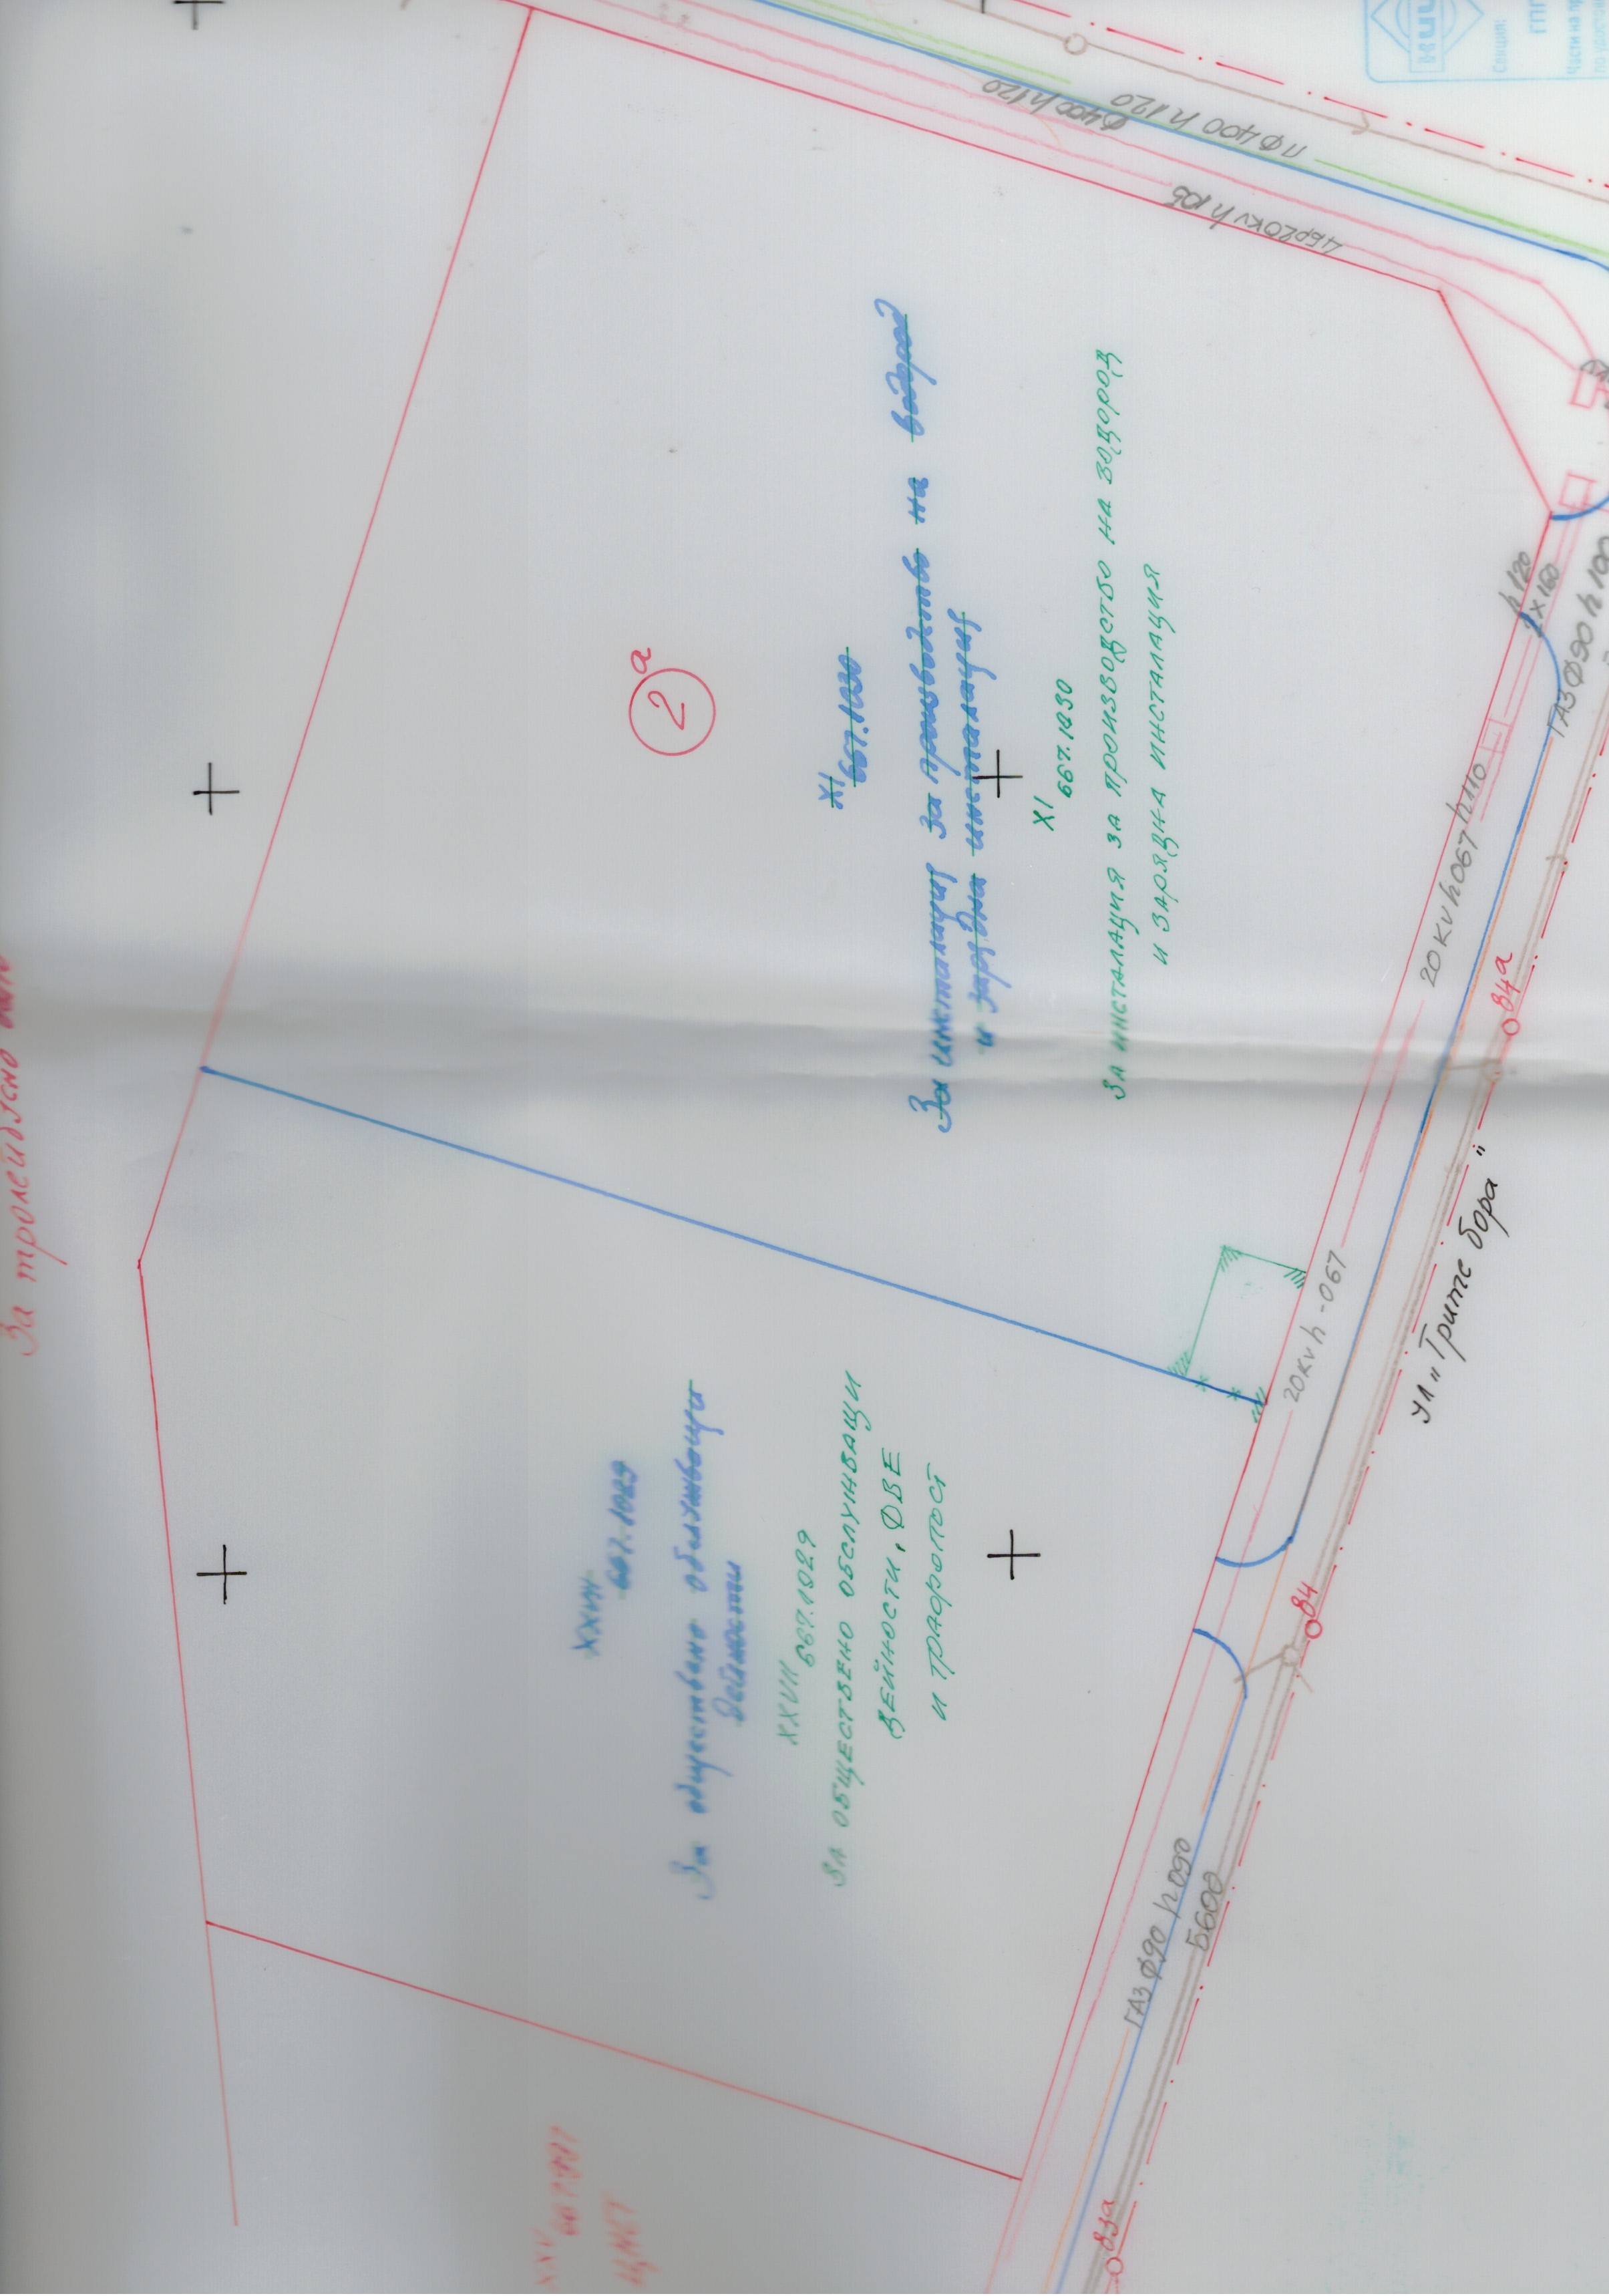 За тролейбусно
2а
XI 667.1030
За инсталация за производство на водород
и зарядна инсталация
XI 667.1030
ЗА ИНСТАЛАЦИЯ ЗА ПРОИЗВОДСТВО НА ВОДОРОД
И ЗАРЯДНА ИНСТАЛАЦИЯ
XXVII 667.1029
За обществено обслужващи
дейности
XXVII 667.1029
ЗА ОБЩЕСТВЕНО ОБСЛУЖВАЩИ
ДЕЙНОСТИ, ОВЕ
И ТРАФОПОСТ
XXV
Ф400 h120
ПФ400 h120
4бр20kv h105
h120
2x160
ГАЗ Ф90 h100
20kv h067 h110
20kv h-067
84а
ул. "Трите бора"
84
ГАЗ Ф90 h090
Б600
83а
Секция:
Части на